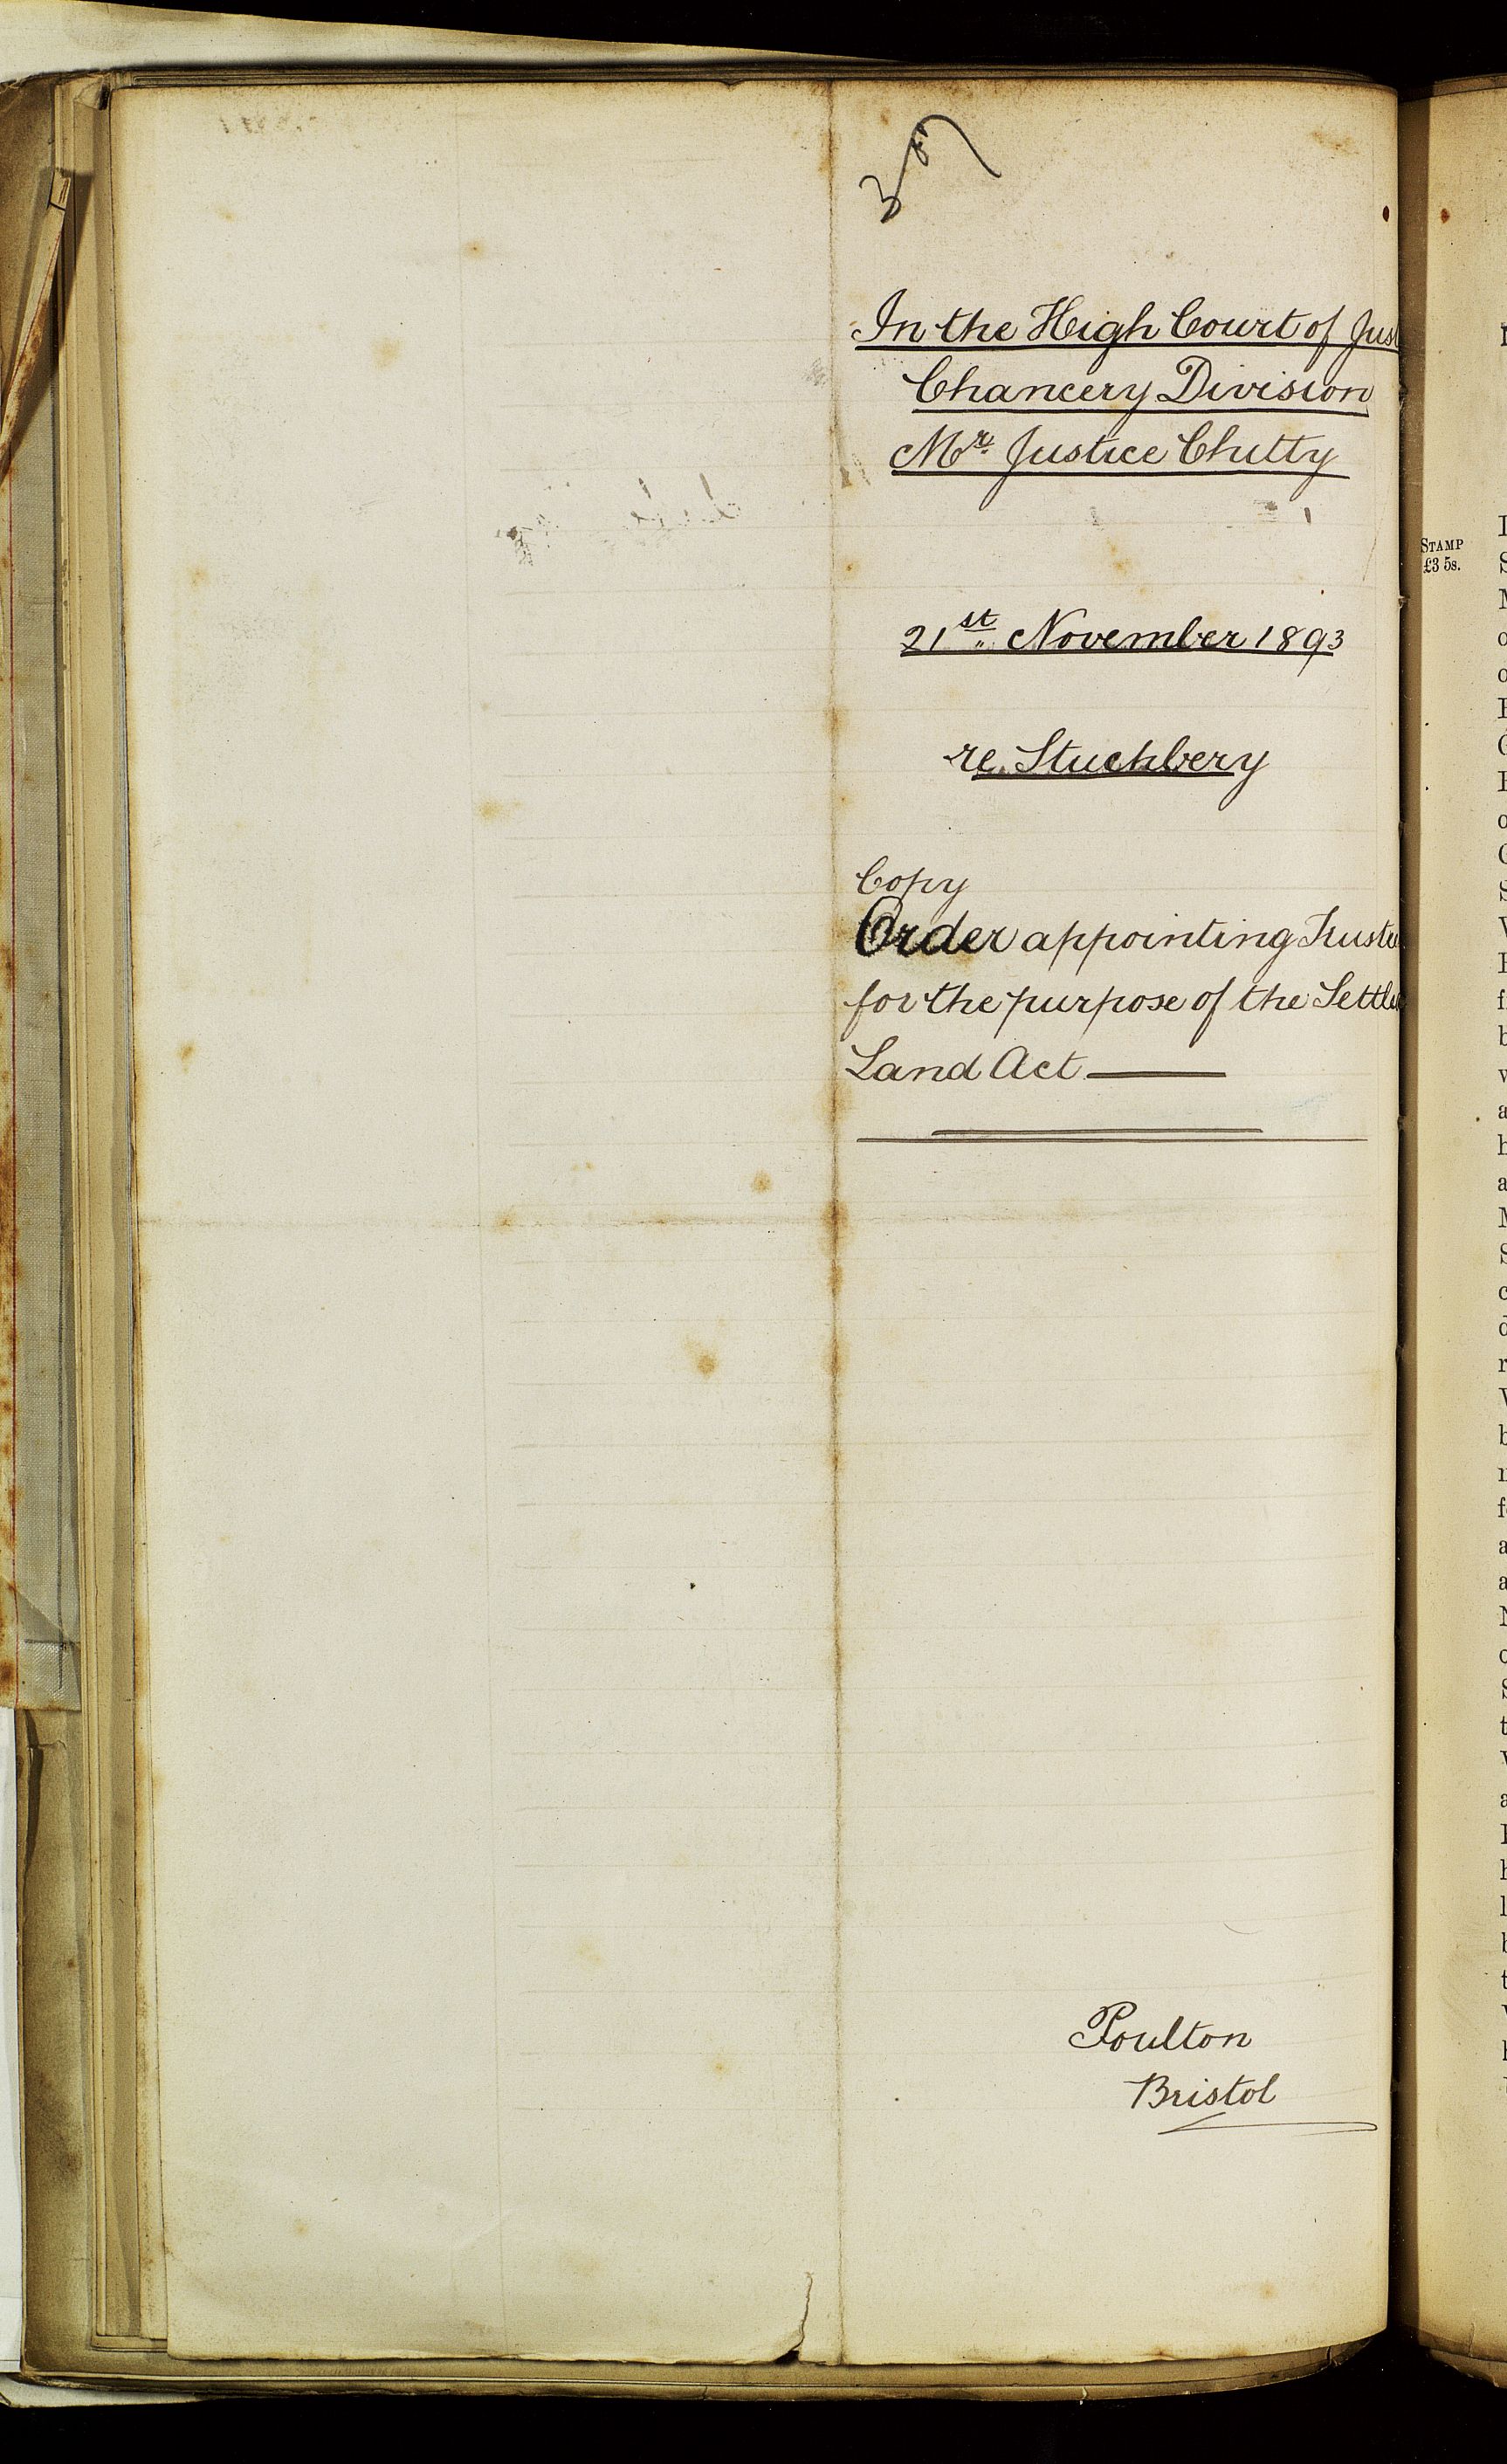 In the High Court of Jus
Chancery Division
Mr. Justice Chitty
21st November 1893
re Stuchbery
Copy
Order appointing Truste
for the purpose of the Settle
Land Act
Poulton
Bristol
STAMP
£3 5s.